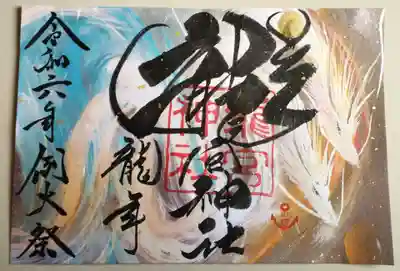 龍宮神社
龍宮
神社
龍年
令和六年例大祭